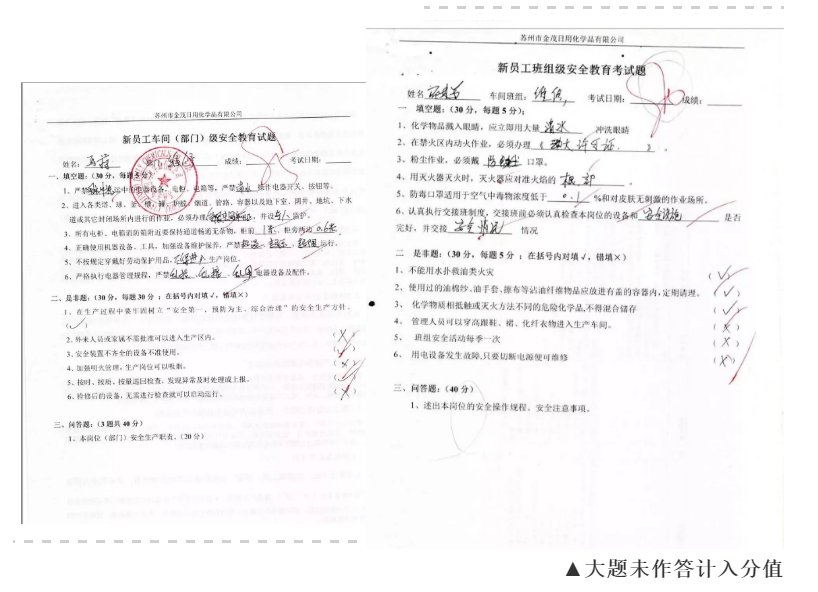 苏州市金茂日用化学品有限公司
新员工车间（部门）级安全教育试题
姓名： 成绩： 考试日期：
一、填空题:（30分，每题5分）
1、严禁
2、进入各类塔、球、釜、槽、罐、炉膛、烟道、管路、容器以及地下室、阴井、地坑、下水
道或其它封闭场所内进行的作业，必须办理 ，并设专人监护。
3、所有电柜、电箱消防箱附近要保持道道畅通无杂物，柜前 1米，柜旁两边0.6米。
4、正确使用机器设备、工具，加强设备维护保养，严禁 运行。
5、不按规定穿戴好劳动保护用品， 生产岗位。
6、严格执行电器管理规程，严禁 电器设备及配件。
二、是非题:（30分，每题30分；在括号内对填√，错填×）
1、在生产过程中要牢固树立“安全第一，预防为主、综合治理”的安全生产方针。
（√）
2、外来人员或家属不需批准可以进入生产区内。 （×）
3、安全装置不齐全的设备不准使用。
4、加强明火管理，生产岗位可以吸烟。 （×）
5、按时、按项、按量巡回检查，发现异常及时处理或上报。 （√）
6、检修后的设备，无需进行检查就可以启动运行。 （×）
三、问答题:（3题共40分）
1、本岗位（部门）安全生产职责。（20分）
苏州市金茂日用化学品有限公司
新员工班组级安全教育考试题
姓名 车间班组：维保 考试日期： 成绩：
一 填空题:（30分，每题5分）；
1、化学物品溅入眼睛，应立即用大量 清水 冲洗眼睛
2、在禁火区内动火作业，必须办理《动火许可证》。
3、粉尘作业，必须戴 防尘 口罩。
4、用灭火器灭火时，灭火器应对准火焰的 根部
5、防毒口罩适用于空气中毒物浓度低于 0.1 %和对皮肤无刺激的作业场所。
6、认真执行交接班制度，交接班前必须认真检查本岗位的设备和 安全设施 是否
完好，并交接 安全情况 情况
二 是非题:（30分，每题5分；在括号内对填√，错填×）
1、不能用水扑救油类火灾 （√）
2、使用过的油棉纱、油手套、擦布等沾油纤维物品应放进有盖的容器内，定期清理。（√）
3、化学物质相抵触或灭火方法不同的危险化学品,不得混合储存 （√）
4、管理人员可以穿高跟鞋、裙、化纤衣物进入生产车间。 （×）
5、班组安全活动每季一次 （×）
6、用电设备发生故障,只要切断电源便可维修 （×）
三、问答题:（40分）
1、述出本岗位的安全操作规程、安全注意事项。
▲大题未作答计入分值